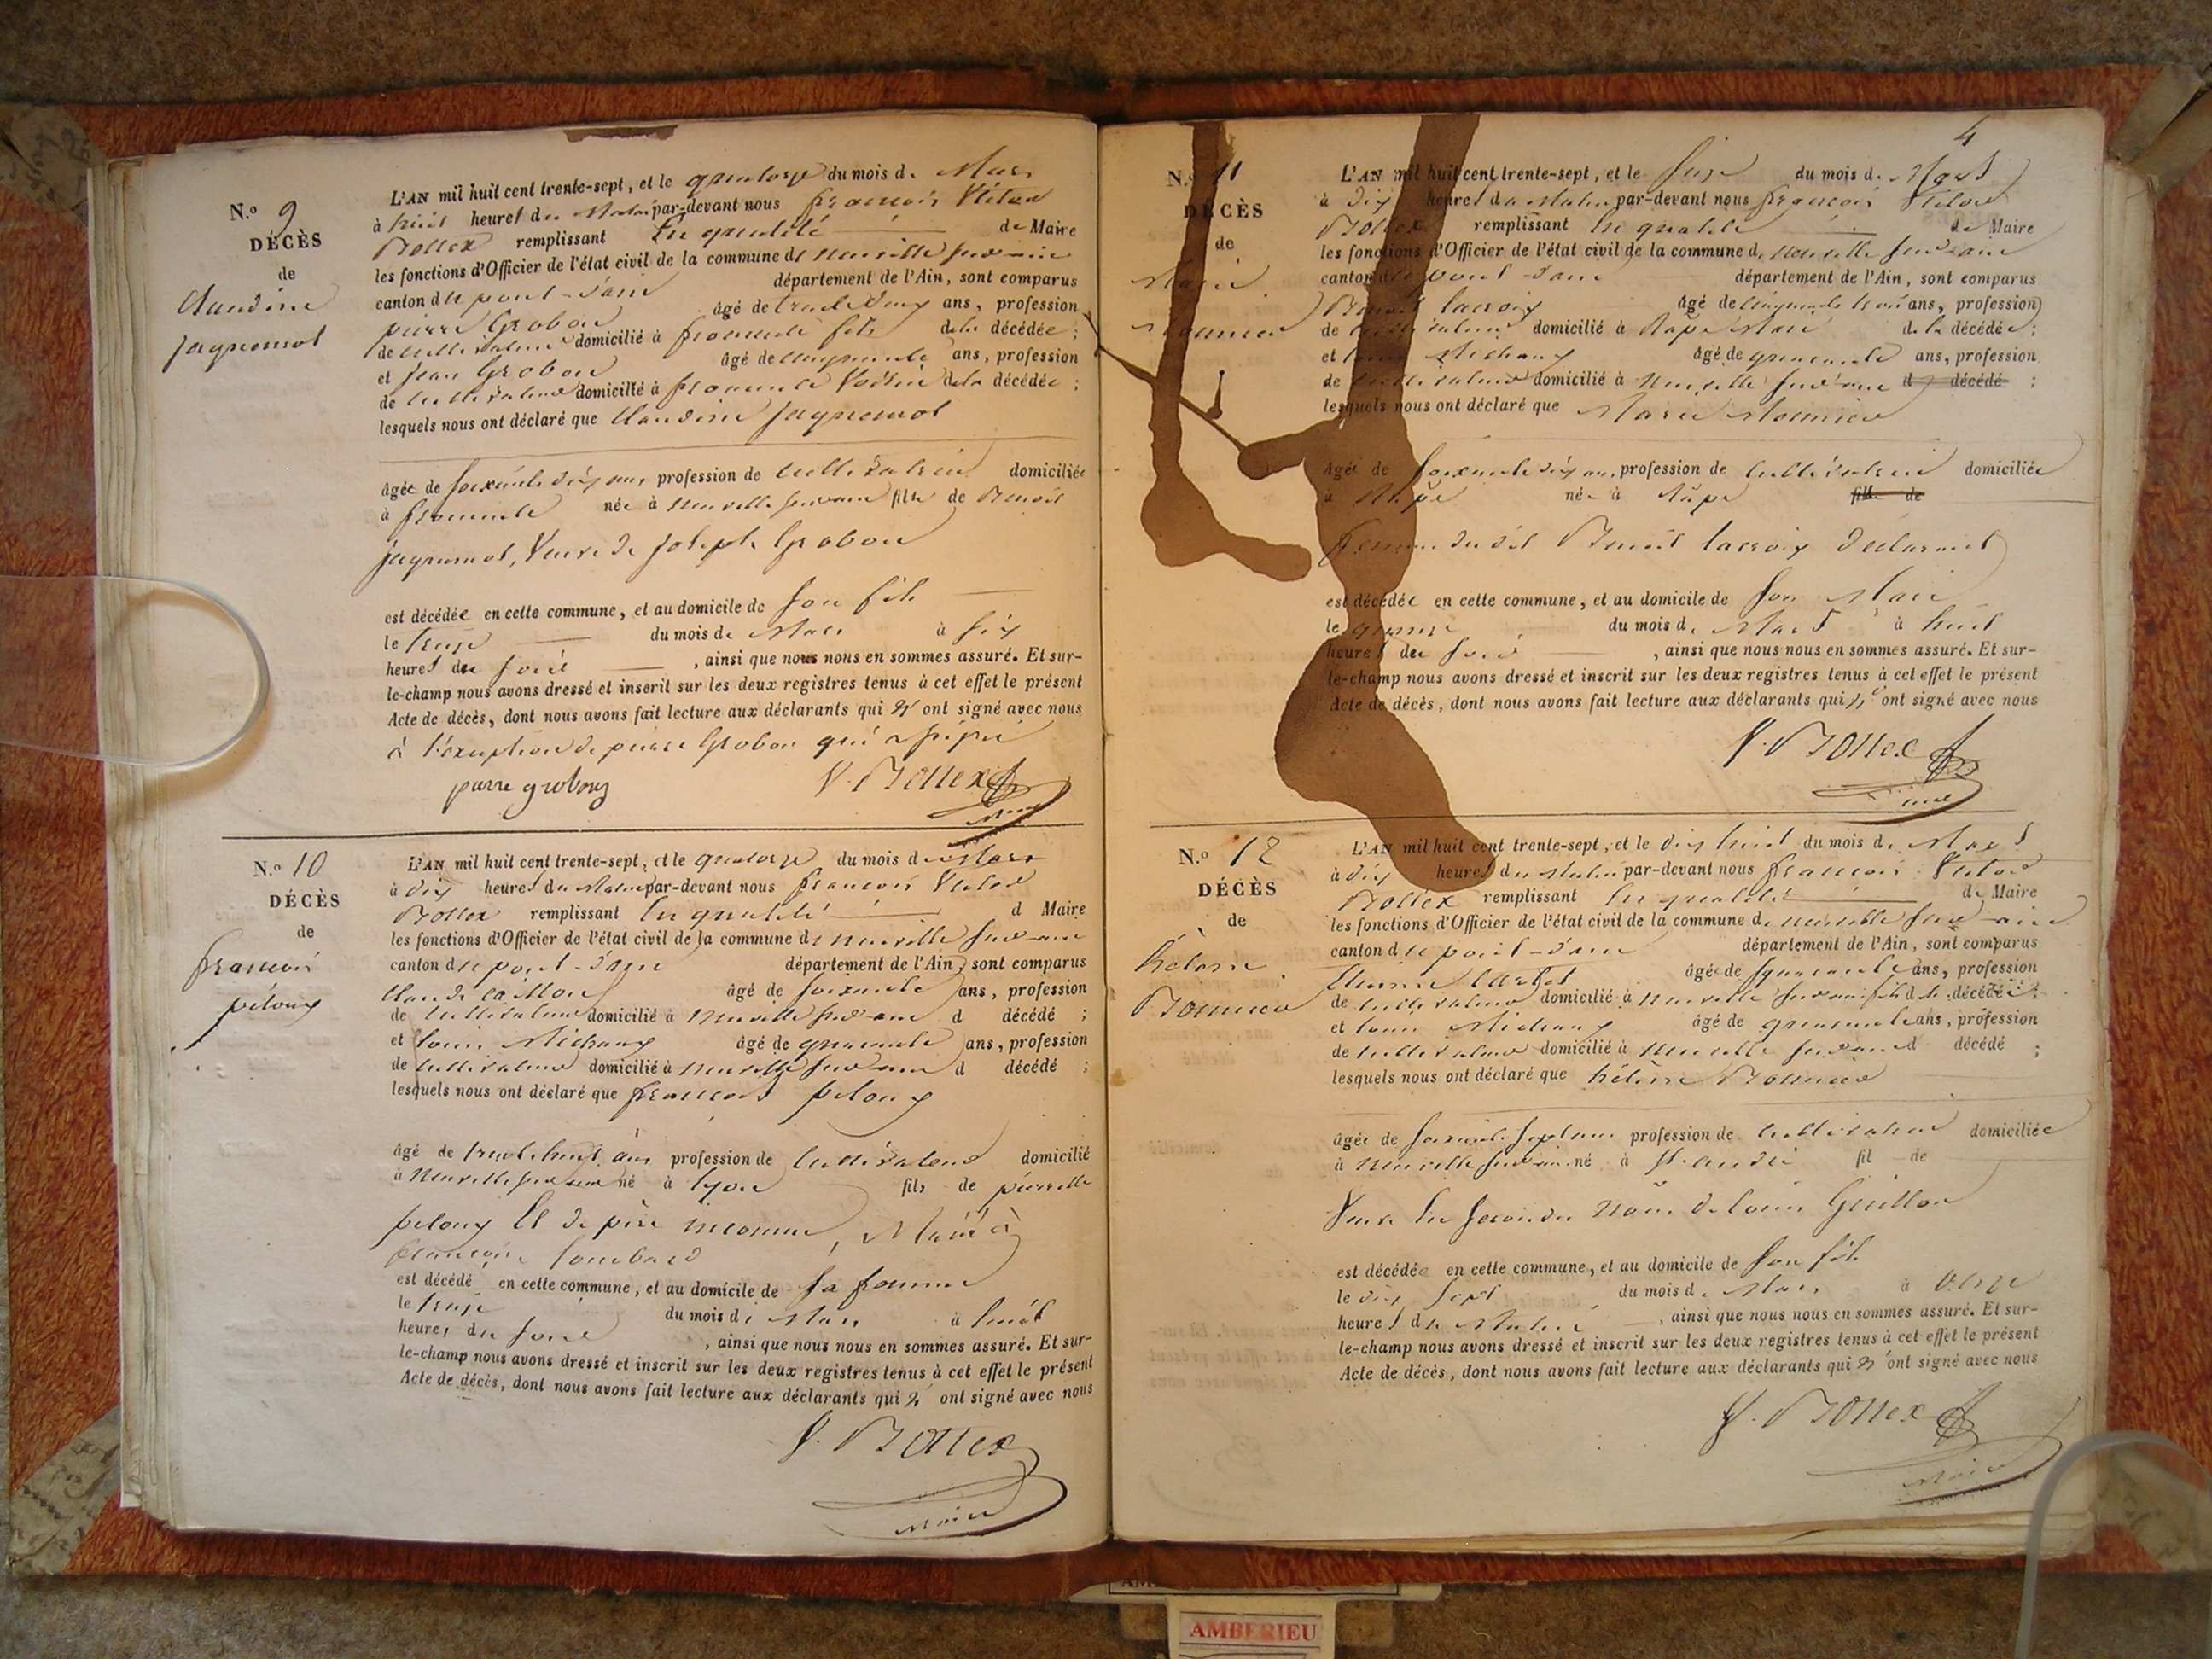 N.º 9
DÉCÈS
de
Claudine
Jaquemot
L'AN mil huit cent trente-sept, et le quatorze du mois de Mars
à huit heures du Matin par-devant nous françois Victor
Bollex remplissant En qualité de Maire
les fonctions d'Officier de l'état civil de la commune de neuville sur ain
canton de pont-d'ain département de l'Ain, sont comparus
pierre Grobon âgé de trente cinq ans, profession
de cultivateur domicilié à fromente fils de la décédée ;
et Jean Grobon âgé de cinquante ans, profession
de cultivateur domicilié à fromente Voisin de la décédée ;
lesquels nous ont déclaré que Claudine Jaquemot
âgée de soixante dix ans profession de cultivatrice domiciliée
à fromente née à neuville sur ain fille de Benoit
jaquemot, Veuve de joseph Grobon
est décédée en cette commune, et au domicile de son fils
le treize du mois de Mars à six
heures du soir, ainsi que nous nous en sommes assuré. Et sur-
le-champ nous avons dressé et inscrit sur les deux registres tenus à cet effet le présent
Acte de décès, dont nous avons fait lecture aux déclarants qui n'ont signé avec nous
à l'exception de pierre Grobon qui a signé
pierre grobon V. Bollex
Maire
N.º 10
DÉCÈS
de
françois
péloux
L'AN mil huit cent trente-sept, et le quatorze du mois de Mars
à dix heures du Matin par-devant nous françois Victor
Bollex remplissant En qualité d Maire
les fonctions d'Officier de l'état civil de la commune de neuville sur ain
canton de pont-d'ain département de l'Ain, sont comparus
Claude âgé de soixante ans, profession
de cultivateur domicilié à neuville sur ain d décédé ;
et louis Michaux âgé de quarante ans, profession
de cultivateur domicilié à neuville sur ain d décédé ;
lesquels nous ont déclaré que françois peloux
âgé de trente huit ans profession de cultivateur domicilié
à neuville sur ain né à lyon fils de pierrette
peloux Et de père inconnu, Marié à
françoise lombard
est décédé en cette commune, et au domicile de sa femme
le treize du mois de Mars à huit
heures du soir, ainsi que nous nous en sommes assuré. Et sur-
le-champ nous avons dressé et inscrit sur les deux registres tenus à cet effet le présent
Acte de décès, dont nous avons fait lecture aux déclarants qui n'ont signé avec nous
V. Bollex
Maire
4
N.º 11
DÉCÈS
de
Marie
L'AN mil huit cent trente-sept, et le seize du mois de Mars
à dix heures du Matin par-devant nous françois Victor
Bollex remplissant En qualité de Maire
les fonctions d'Officier de l'état civil de la commune de neuville sur ain
canton de pont-d'ain département de l'Ain, sont comparus
Benoit lacroix âgé de cinquante trois ans, profession
de cultivateur domicilié à Mari de la décédée ;
et louis Michaux âgé de quarante ans, profession
de cultivateur domicilié à neuville sur ain d décédé ;
lesquels nous ont déclaré que Marie
âgée de soixante dix ans profession de cultivatrice domiciliée
à née à fille de
femme du dit Benoit lacroix déclarant
est décédée en cette commune, et au domicile de son Mari
le quinze du mois de Mars à huit
heures du soir, ainsi que nous nous en sommes assuré. Et sur-
le-champ nous avons dressé et inscrit sur les deux registres tenus à cet effet le présent
Acte de décès, dont nous avons fait lecture aux déclarants qui n'ont signé avec nous
V. Bollex
N.º 12
DÉCÈS
de
hélène
L'AN mil huit cent trente-sept, et le dix huit du mois de Mars
à dix heures du Matin par-devant nous françois Victor
Bollex remplissant En qualité de Maire
les fonctions d'Officier de l'état civil de la commune de neuville sur ain
canton de pont-d'ain département de l'Ain, sont comparus
âgé de quarante ans, profession
de cultivateur domicilié à neuville sur ain fils de la décédée ;
et louis Michaux âgé de quarante ans, profession
de cultivateur domicilié à neuville sur ain d décédé ;
lesquels nous ont déclaré que hélène
âgée de soixante sept ans profession de cultivatrice domiciliée
à neuville sur ain né à St. andré fil de
Veuve En secondes noces de louis Guillon
est décédée en cette commune, et au domicile de son fils
le dix sept du mois de Mars à onze
heures du Matin, ainsi que nous nous en sommes assuré. Et sur-
le-champ nous avons dressé et inscrit sur les deux registres tenus à cet effet le présent
Acte de décès, dont nous avons fait lecture aux déclarants qui n'ont signé avec nous
V. Bollex
Maire
AMBERIEU